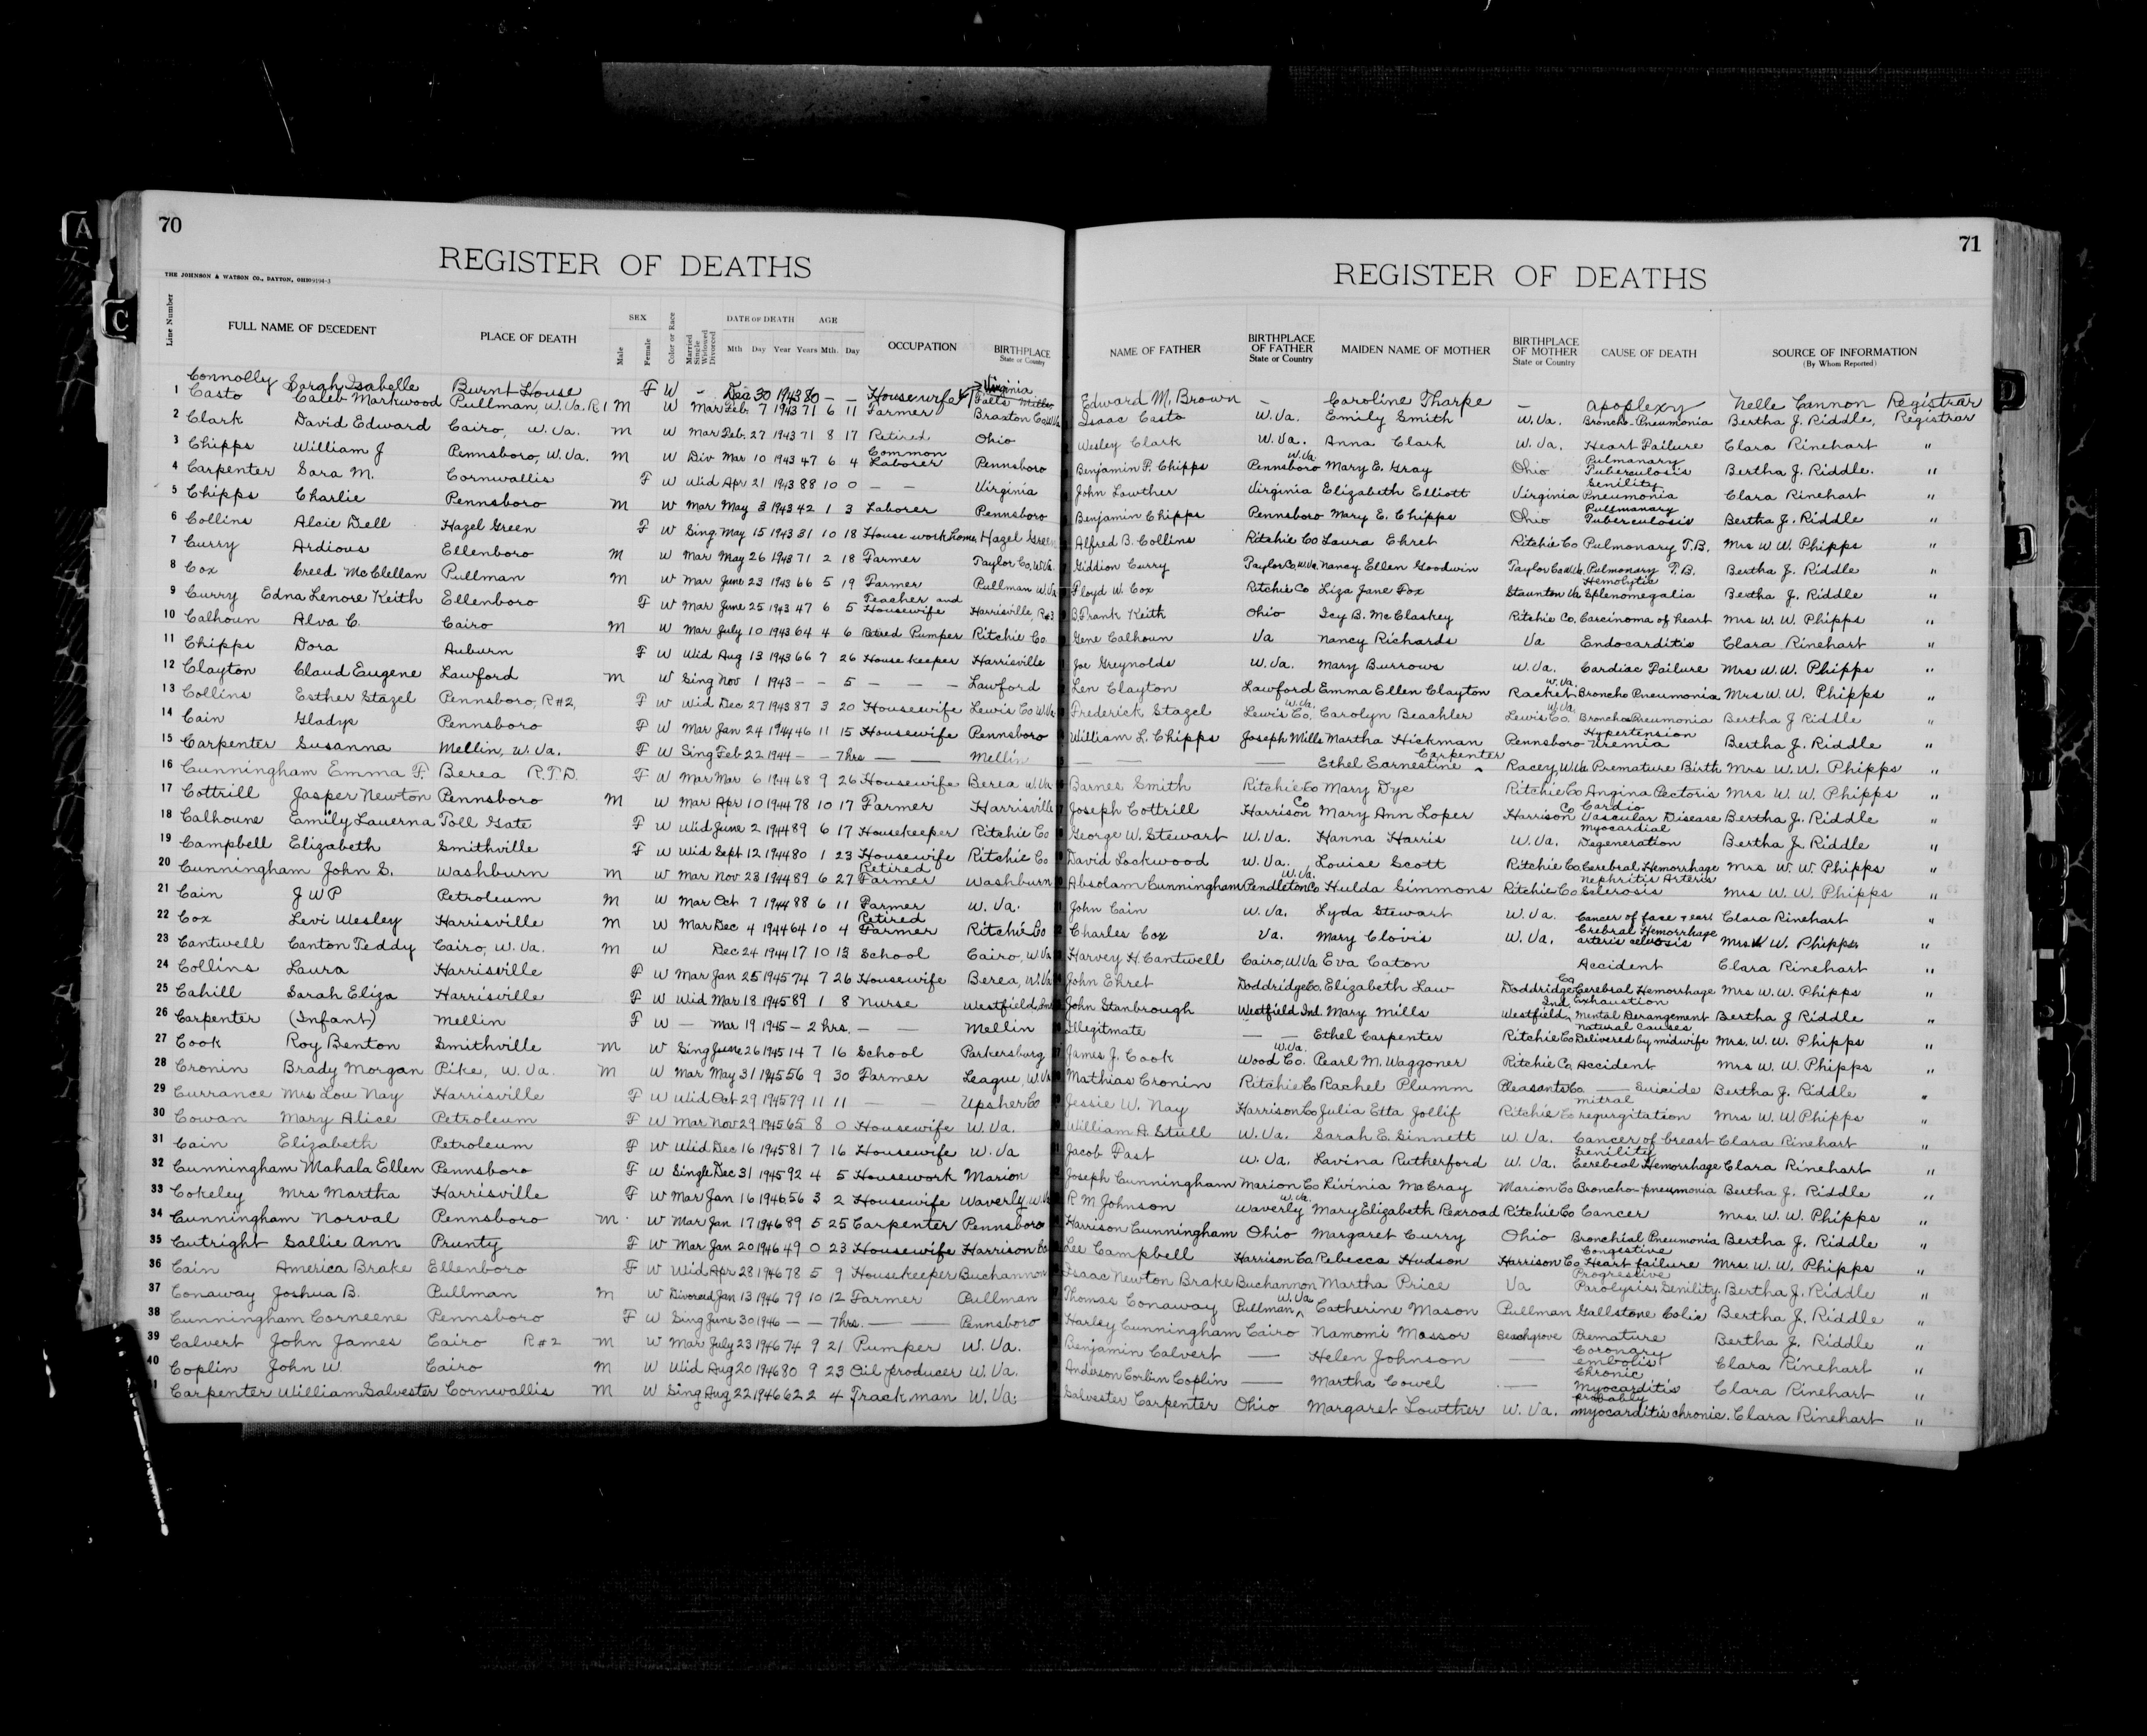 A
C
D
I
70
REGISTER OF DEATHS
THE JOHNSON & WATSON CO., DAYTON, OHIO 9194-3
Line Number
FULL NAME OF DECEDENT
PLACE OF DEATH
SEX
Male
Female
Color or Race
Married Single Widowed Divorced
DATE OF DEATH
Mth Day Year
AGE
Years Mth. Day
OCCUPATION
BIRTHPLACE State or Country
Connolly Sarah Isabelle Burnt House F W - Dec 30 1943 80 - - Housewife Virginia
1 Casto Caleb Markwood Pullman, W. Va. R 1 M W Mar Feb. 7 1943 71 6 11 Farmer Braxton Co W Va
2 Clark David Edward Cairo, W. Va. M W Mar Feb. 27 1943 71 8 17 Retired Ohio
3 Chipps William J Pennsboro, W. Va. M W Div Mar 10 1943 47 6 4 Common Laborer Pennsboro
4 Carpenter Sara M. Cornwallis F W Wid Apr 21 1943 88 10 0 - - Virginia
5 Chipps Charlie Pennsboro M W Mar May 3 1943 42 1 3 Laborer Pennsboro
6 Collins Alcie Dell Hazel Green F W Sing. May 15 1943 31 10 18 House work home Hazel Green
7 Curry Ardious Ellenboro M W Mar May 26 1943 71 2 18 Farmer Taylor Co, W. Va.
8 Cox Creed McClellan Pullman M W Mar June 23 1943 66 5 19 Farmer Pullman W Va
9 Curry Edna Lenore Keith Ellenboro F W Mar June 25 1943 47 6 5 Teacher and Housewife Harrisville, R#3
10 Calhoun Alva C. Cairo M W Mar July 10 1943 64 4 6 Retired Pumper Ritchie Co.
11 Chipps Dora Auburn F W Wid Aug 13 1943 66 7 26 House keeper Harrisville
12 Clayton Claud Eugene Lawford M W Sing Nov 1 1943 - - 5 - - - Lawford
13 Collins Esther Stazel Pennsboro, R#2, F W Wid Dec 27 1943 87 3 20 Housewife Lewis Co W. Va
14 Cain Gladys Pennsboro F W Mar Jan 24 1944 46 11 15 Housewife Pennsboro
15 Carpenter Susanna Mellin, W. Va. F W Sing Feb 22 1944 - - 7 hrs - - Mellin
16 Cunningham Emma F. Berea R.F.D. F W Mar Mar 6 1944 68 9 26 Housewife Berea W. Va
17 Cottrill Jasper Newton Pennsboro M W Mar Apr 10 1944 78 10 17 Farmer Harrisville
18 Calhoune Emily Laverna Toll Gate F W Wid June 2 1944 89 6 17 Housekeeper Ritchie Co
19 Campbell Elizabeth Smithville F W Wid Sept 12 1944 80 1 23 Housewife Ritchie Co
20 Cunningham John S. Washburn M W Mar Nov 28 1944 89 6 27 Retired Farmer Washburn
21 Cain J W P Petroleum M W Mar Oct 7 1944 88 6 11 Farmer W. Va.
22 Cox Levi Wesley Harrisville M W Mar Dec 4 1944 64 10 4 Retired Farmer Ritchie Co
23 Cantwell Canton Teddy Cairo, W. Va. M W Dec 24 1944 17 10 13 School Cairo, W Va
24 Collins Laura Harrisville F W Mar Jan 25 1945 74 7 26 Housewife Berea, W. Va
25 Cahill Sarah Eliza Harrisville F W Wid Mar 18 1945 89 1 8 Nurse Westfield, Ind
26 Carpenter (Infant) Mellin F W - Mar 19 1945 - 2 hrs. - - Mellin
27 Cook Roy Benton Smithville M W Sing June 26 1945 14 7 16 School Parkersburg
28 Cronin Brady Morgan Pike, W. Va. M W Mar May 31 1945 56 9 30 Farmer League, W. Va
29 Currance Mrs Lou Nay Harrisville F W Wid Oct 29 1945 79 11 11 - - Upsher Co
30 Cowan Mary Alice Petroleum F W Mar Nov 29 1945 65 8 0 Housewife W. Va.
31 Cain Elizabeth Petroleum F W Wid Dec 16 1945 81 7 16 Housewife W. Va
32 Cunningham Mahala Ellen Pennsboro F W Single Dec 31 1945 92 4 5 Housework Marion
33 Cokeley Mrs Martha Harrisville F W Mar Jan 16 1946 56 3 2 Housewife Waverly W. Va
34 Cunningham Norval Pennsboro M W Mar Jan 17 1946 89 5 25 Carpenter Pennsboro
35 Cutright Sallie Ann Prunty F W Mar Jan 20 1946 49 0 23 Housewife Harrison Co
36 Cain America Brake Ellenboro F W Wid Apr 28 1946 78 5 9 Housekeeper Buchannon
37 Conaway Joshua B. Pullman M W Divorced Jan 13 1946 79 10 12 Farmer Pullman
38 Cunningham Corneene Pennsboro F W Sing June 30 1946 - - 7 hrs. - - Pennsboro
39 Calvert John James Cairo R#2 M W Mar July 23 1946 74 9 21 Pumper W. Va.
40 Coplin John W. Cairo M W Wid Aug 20 1946 80 9 23 Oil producer W. Va.
Carpenter William Salvester Cornwallis M W Sing Aug 22 1946 62 2 4 Trackman W. Va.
71
REGISTER OF DEATHS
NAME OF FATHER
BIRTHPLACE OF FATHER State or Country
MAIDEN NAME OF MOTHER
BIRTHPLACE OF MOTHER State or Country
CAUSE OF DEATH
SOURCE OF INFORMATION
(By Whom Reported)
Edward M. Brown - Caroline Tharpe - Apoplexy Nelle Cannon Registrar
Isaac Casto W. Va. Emily Smith W. Va. Broncho-Pneumonia Bertha J. Riddle, Registrar
Wesley Clark W. Va. Anna Clark W. Va. Heart Failure Clara Rinehart "
Benjamin P. Chipps Pennsboro W. Va. Mary E. Gray Ohio Pulmanary Tuberculosis Bertha J. Riddle. "
John Lowther Virginia Elizabeth Elliott Virginia Senility Pneumonia Clara Rinehart "
Benjamin Chipps Pennsboro Mary E. Chipps Ohio Pullmanary Tuberculosis Bertha J. Riddle "
Alfred B. Collins Ritchie Co Laura Ehret Ritchie Co Pulmonary T.B. Mrs W. W. Phipps "
Giddion Curry Taylor Co, W. Va. Nancy Ellen Goodwin Taylor Co W. Va. Pulmonary T.B. Bertha J. Riddle "
Floyd W. Cox Ritchie Co Liza Jane Fox Staunton Va Hemolytic Splenomegalia Bertha J. Riddle "
B. Frank Keith Ohio Icy B. McClaskey Ritchie Co. Carcinoma of heart Mrs W. W. Phipps "
Gene Calhoun Va Nancy Richards Va Endocarditis Clara Rinehart "
Joe Greynolds W. Va. Mary Burrows W. Va. Cardiac Failure Mrs W. W. Phipps "
Len Clayton Lawford Emma Ellen Clayton Racket W. Va. Broncho Pneumonia Mrs W. W. Phipps "
Frederick Stazel Lewis Co. W. Va. Carolyn Beachler Lewis Co. W. Va. Broncho Pneumonia Bertha J Riddle "
William L. Chipps Joseph Mills Martha Hickman Pennsboro Hypertension Uremia Bertha J. Riddle "
- - - Ethel Earnestine Carpenter Racey, W. Va Premature Birth Mrs W. W. Phipps "
Barnes Smith Ritchie Co Mary Dye Ritchie Co Angina Pectoris Mrs W. W. Phipps "
Joseph Cottrill Harrison Co Mary Ann Loper Harrison Co Cardio Vascular Disease Bertha J. Riddle "
George W. Stewart W. Va. Hanna Harris W. Va. Myocardial Degeneration Bertha J. Riddle "
David Lockwood W. Va. Louise Scott Ritchie Co Cerebral Hemorrhage Mrs W. W. Phipps "
Absolam Cunningham Pendleton Co W. Va. Hulda Simmons Ritchie Co Nephritis Arteris Sclerosis Mrs W. W. Phipps "
John Cain W. Va. Lyda Stewart W. Va. Cancer of face & ear. Clara Rinehart "
Charles Cox Va. Mary Clovis W. Va. Crebral Hemorrhage arteris celerosis Mrs W. W. Phipps "
Harvey H. Cantwell Cairo, W. Va Eva Caton Accident Clara Rinehart "
John Ehret Doddridge Co. Elizabeth Law Doddridge Co Cerebral Hemorrhage Mrs W. W. Phipps "
John Stanbrough Westfield Ind. Mary Mills Westfield, Ind. Exhaustion Mental Derangement Bertha J Riddle "
Illegitmate - - Ethel Carpenter Ritchie Co Natural Causes Delivered by midwife Mrs. W. W. Phipps "
James J. Cook Wood Co. W. Va. Pearl M. Waggoner Ritchie Co Accident Mrs W. W. Phipps "
Mathias Cronin Ritchie Co Rachel Plumm Pleasants Co. - Suicide Bertha J. Riddle "
Jessie W. Nay Harrison Co Julia Etta Jollif Ritchie Co mitral regurgitation Mrs W. W Phipps "
William A. Stull W. Va. Sarah E. Sinnett W. Va. Cancer of breast Clara Rinehart "
Jacob Past W. Va. Lavina Rutherford W. Va. Senility Cerebral Hemorrhage Clara Rinehart "
Joseph Cunningham Marion Co Livinia McCray Marion Co Broncho-pneumonia Bertha J. Riddle "
R M Johnson Waverly W. Va. Mary Elizabeth Rexroad Ritchie Co Cancer Mrs. W. W. Phipps "
Harrison Cunningham Ohio Margaret Curry Ohio Bronchial Pneumonia Bertha J. Riddle "
Lee Campbell Harrison Co Rebecca Hudson Harrison Co Congestive Heart failure Mrs. W. W. Phipps "
Isaac Newton Brake Buchannon Martha Price Va Progressive Paralysis, Senility. Bertha J. Riddle "
Thomas Conaway Pullman, W. Va Catherine Mason Pullman Gallstone Colic Bertha J. Riddle "
Harley Cunningham Cairo Namomi Mossor Beachgrove Premature Bertha J. Riddle "
Benjamin Calvert - Helen Johnson - Coronary embolis Clara Rinehart "
Anderson Corbin Coplin - Martha Cowel - Chronic Myocarditis Clara Rinehart "
Salvester Carpenter Ohio Margaret Lowther W. Va. probably myocarditis chronic. Clara Rinehart "